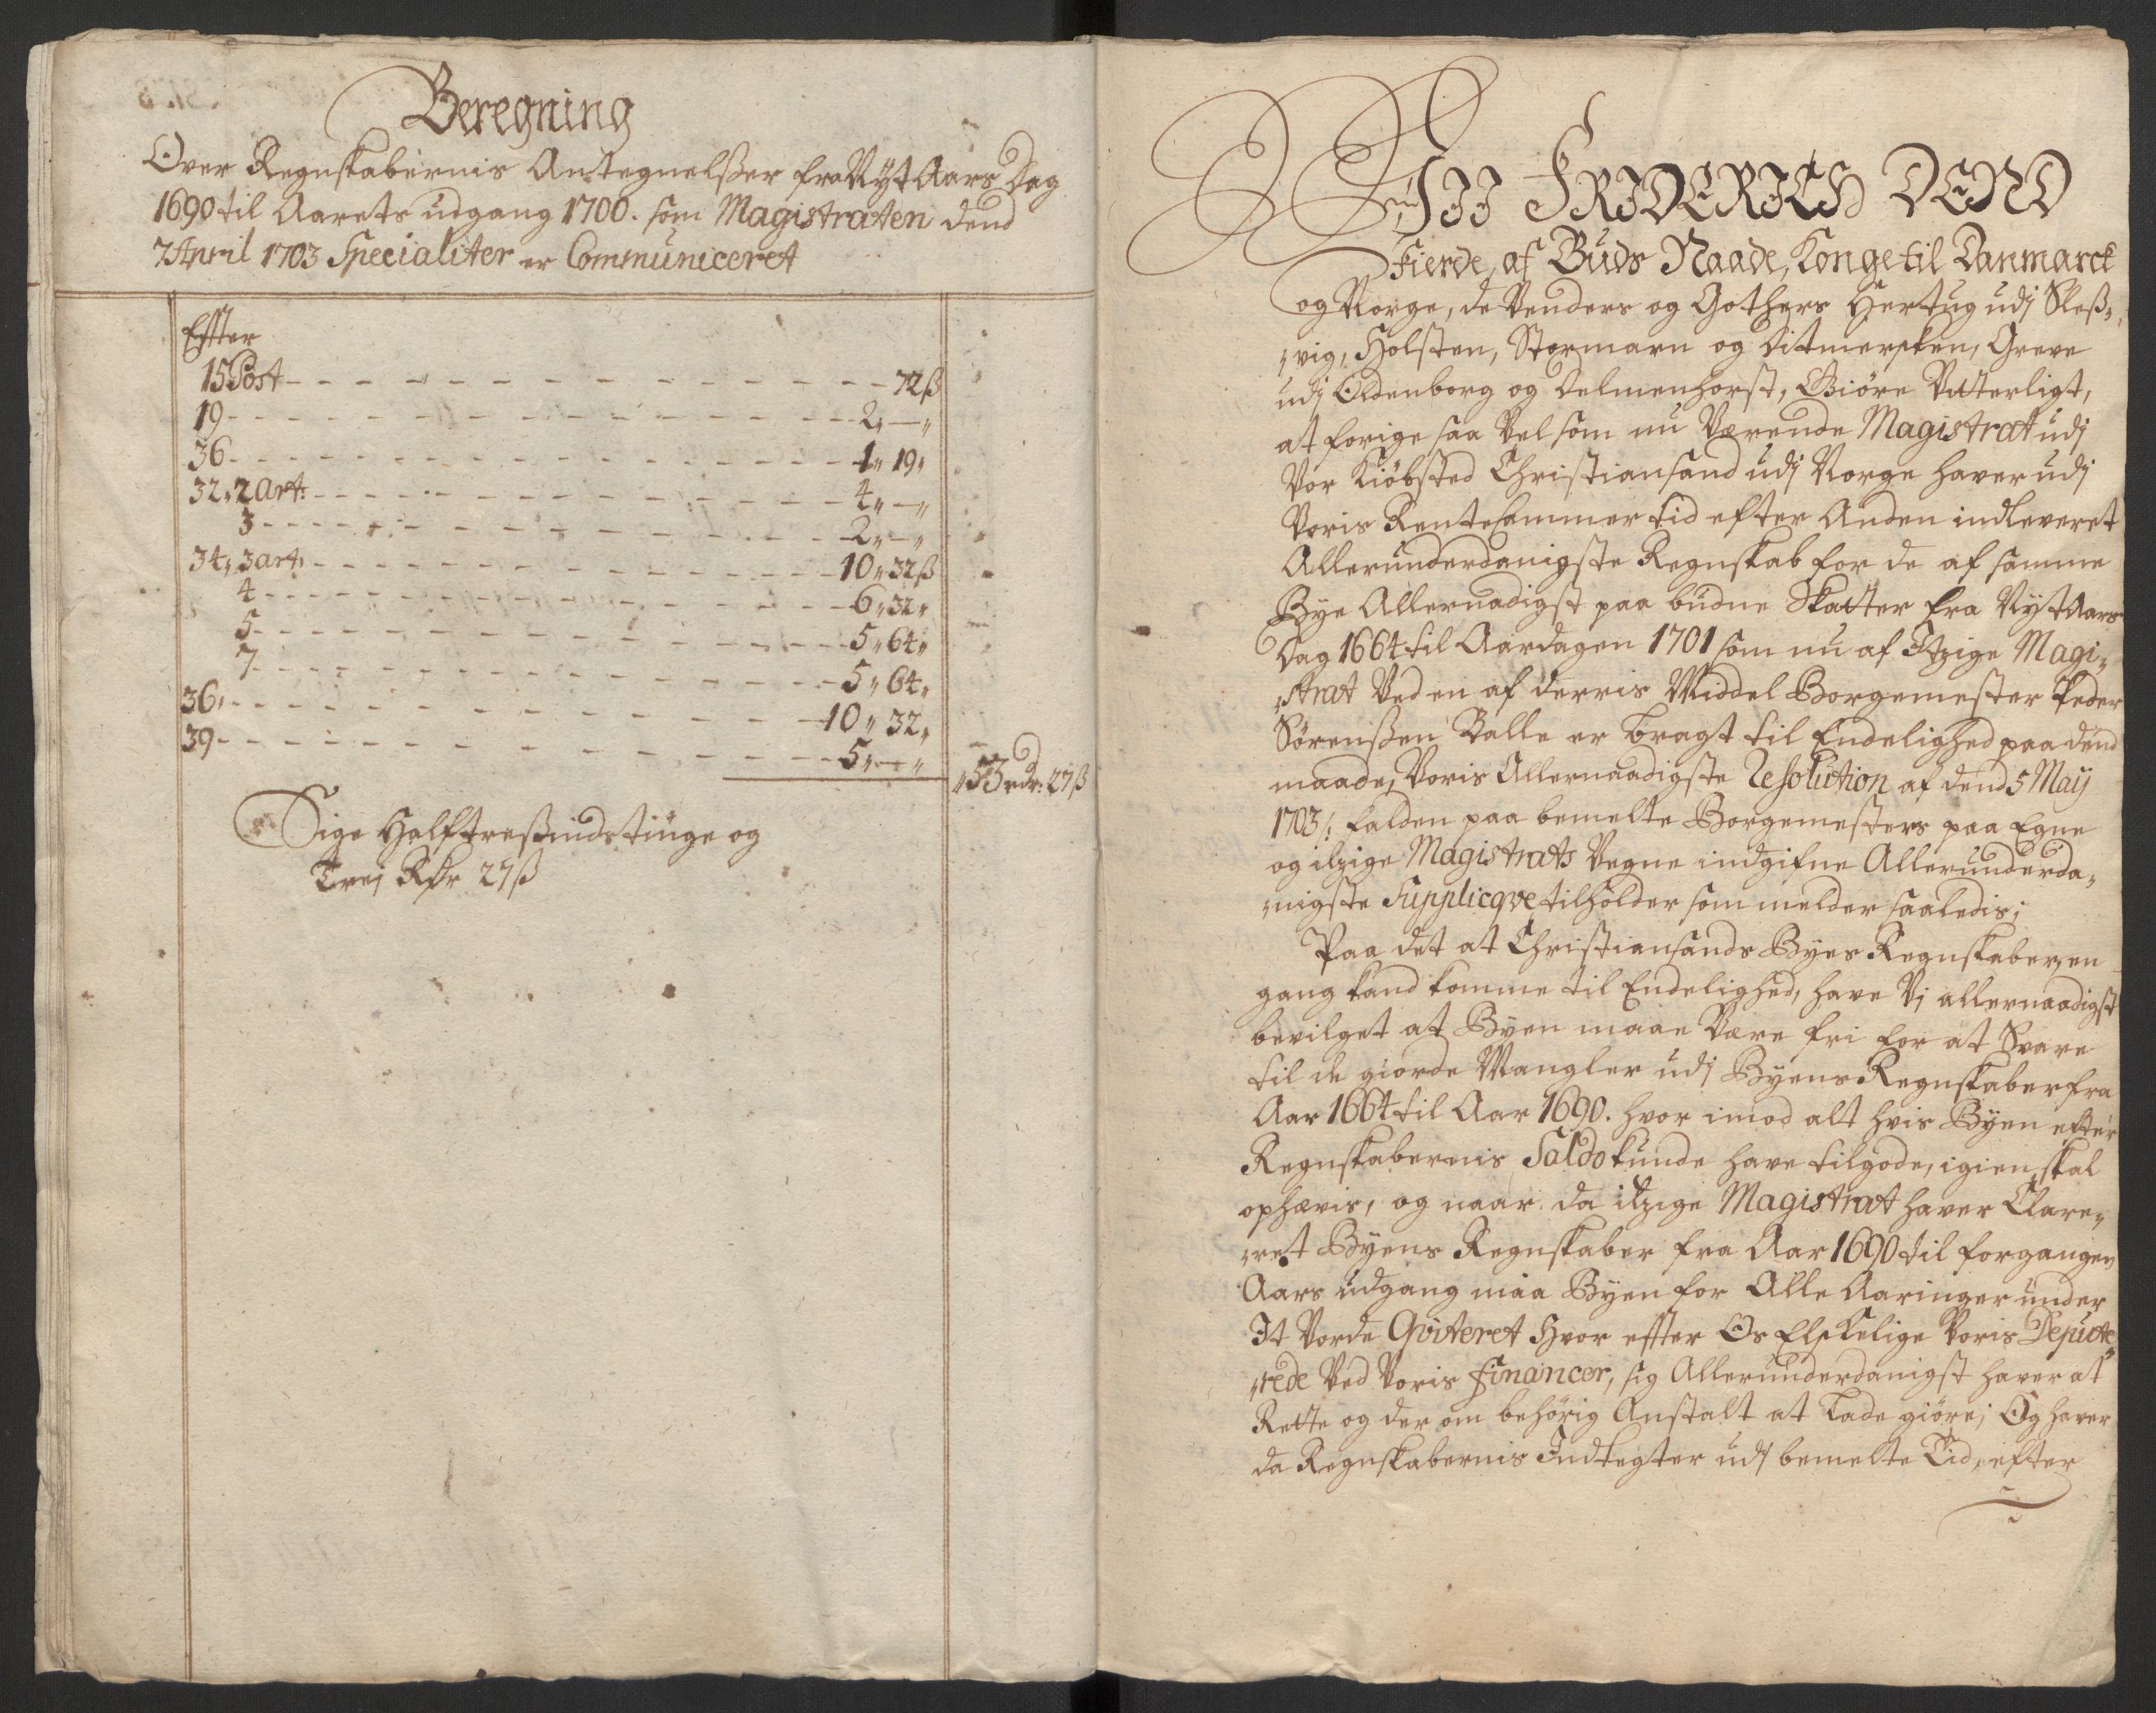 Beregning
Over Regnskabernis Antegnelsßer fra Nyt Aars Dag
1690 til Aarets udgang 1700. som Magistraten dend
7 April 1703 Specialiter er Communiceret
Effter
15 Post - - - 72ß
19 - - - 2„ —„
36 - - - 1„ 19„
32„ 2 art: - - - 4„ —„
3 - - - 2„ —„
34„ 3 art: - - - 10„ 32ß
4 - - - 6„ 32„
5 - - - 5„ 64„
7 - - - 5„ 64„
36„ - - - 10„ 32„
39 - - - 5„ —„
„53 rdr: 27ß
Sige Halftresßindstiuge og
Trej Rdr 27ß
WII FRIDERICH DEND
Fierde, af Guds Naade, Konge til Danmarck
og Norge, de Venders og Gothers Hertug udj Sleß„
„vig, Holsten, Stormarn og Ditmersken, Greve
udj Oldenborg og Delmenhorst, Giöre Vitterligt,
at forige saa Vel som nu Værende Magistrat udj
Vor Kiöbsted Christiansand udj Norge haver udj
Voris Rentecammer tid efter Anden indleveret
Allerunderdanigste Regnskab for de af samme
Bye Allernadigst paa budne Skatter fra Nyt Aars
Dag 1664 til Aarsdagen 1701 som nu af Itzige Magi„
„strat Ved en af derris Middel Borgemester Peder
Sörensßen Balle er bragt til Endelighed paa dend
maade, Voris Allernaadigste Resolution af dend 5 May
1703 /: falden paa bemelte Borgemesters paa Egne
og itzige Magistrats Vegne indgifne Allerunderda„
„nigste Supplicqve tilholder som melder saaledis;
Paa det at Christiansands Byes Regnskaber, en
gang kand komme til Endelighed, have Vj allernaadigst
bevilget at Byen maae Være fri for at Svare
til de giorde Mangler udj Byens Regnskaber fra
Aar 1664 til Aar 1690. hvor imod alt hvis Byen efter
Regnskabernis Saldo kunde have tilgode, igien skal
ophævis, og naar da itzige Magistrat haver Clare„
„ret Byens Regnskaber fra Aar 1690 til forgangen
Aars udgang maa Byen for Alle Aaringer under
It Vorde Qviteret Hvor effter Os Elskelige Voris Depute„
„rede Ved Voris Financer, sig Allerunderdanigst haver at
Rette og der om behörig Anstalt at Lade giöre; Og haver
da Regnskabernis Indtegter udj bemelte Tid, efter